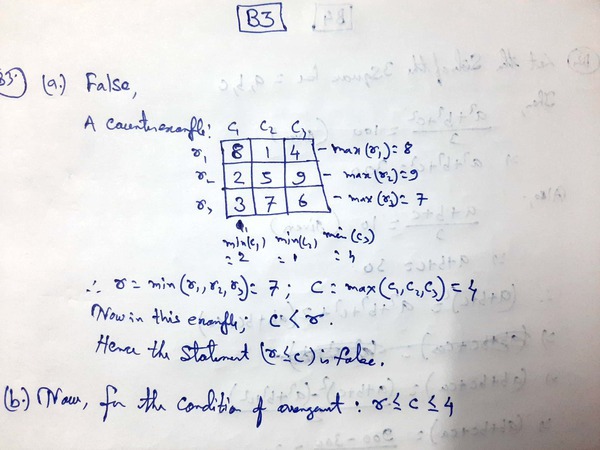 B3
B3. (a.) False,
A counterexample: C1 C2 C3
r1 8 1 4 - max(r1) = 8
r2 2 5 9 - max(r2) = 9
r3 3 7 6 - max(r3) = 7
min(C1) min(C2) min(C3)
= 2 = 1 = 4
∴ r = min(r1, r2, r3) = 7; C = max(C1, C2, C3) = 4
Now in this example; C < r.
Hence the statement (r ≤ c) is false.
(b.) Now, for the condition of : r ≤ C ≤ 4